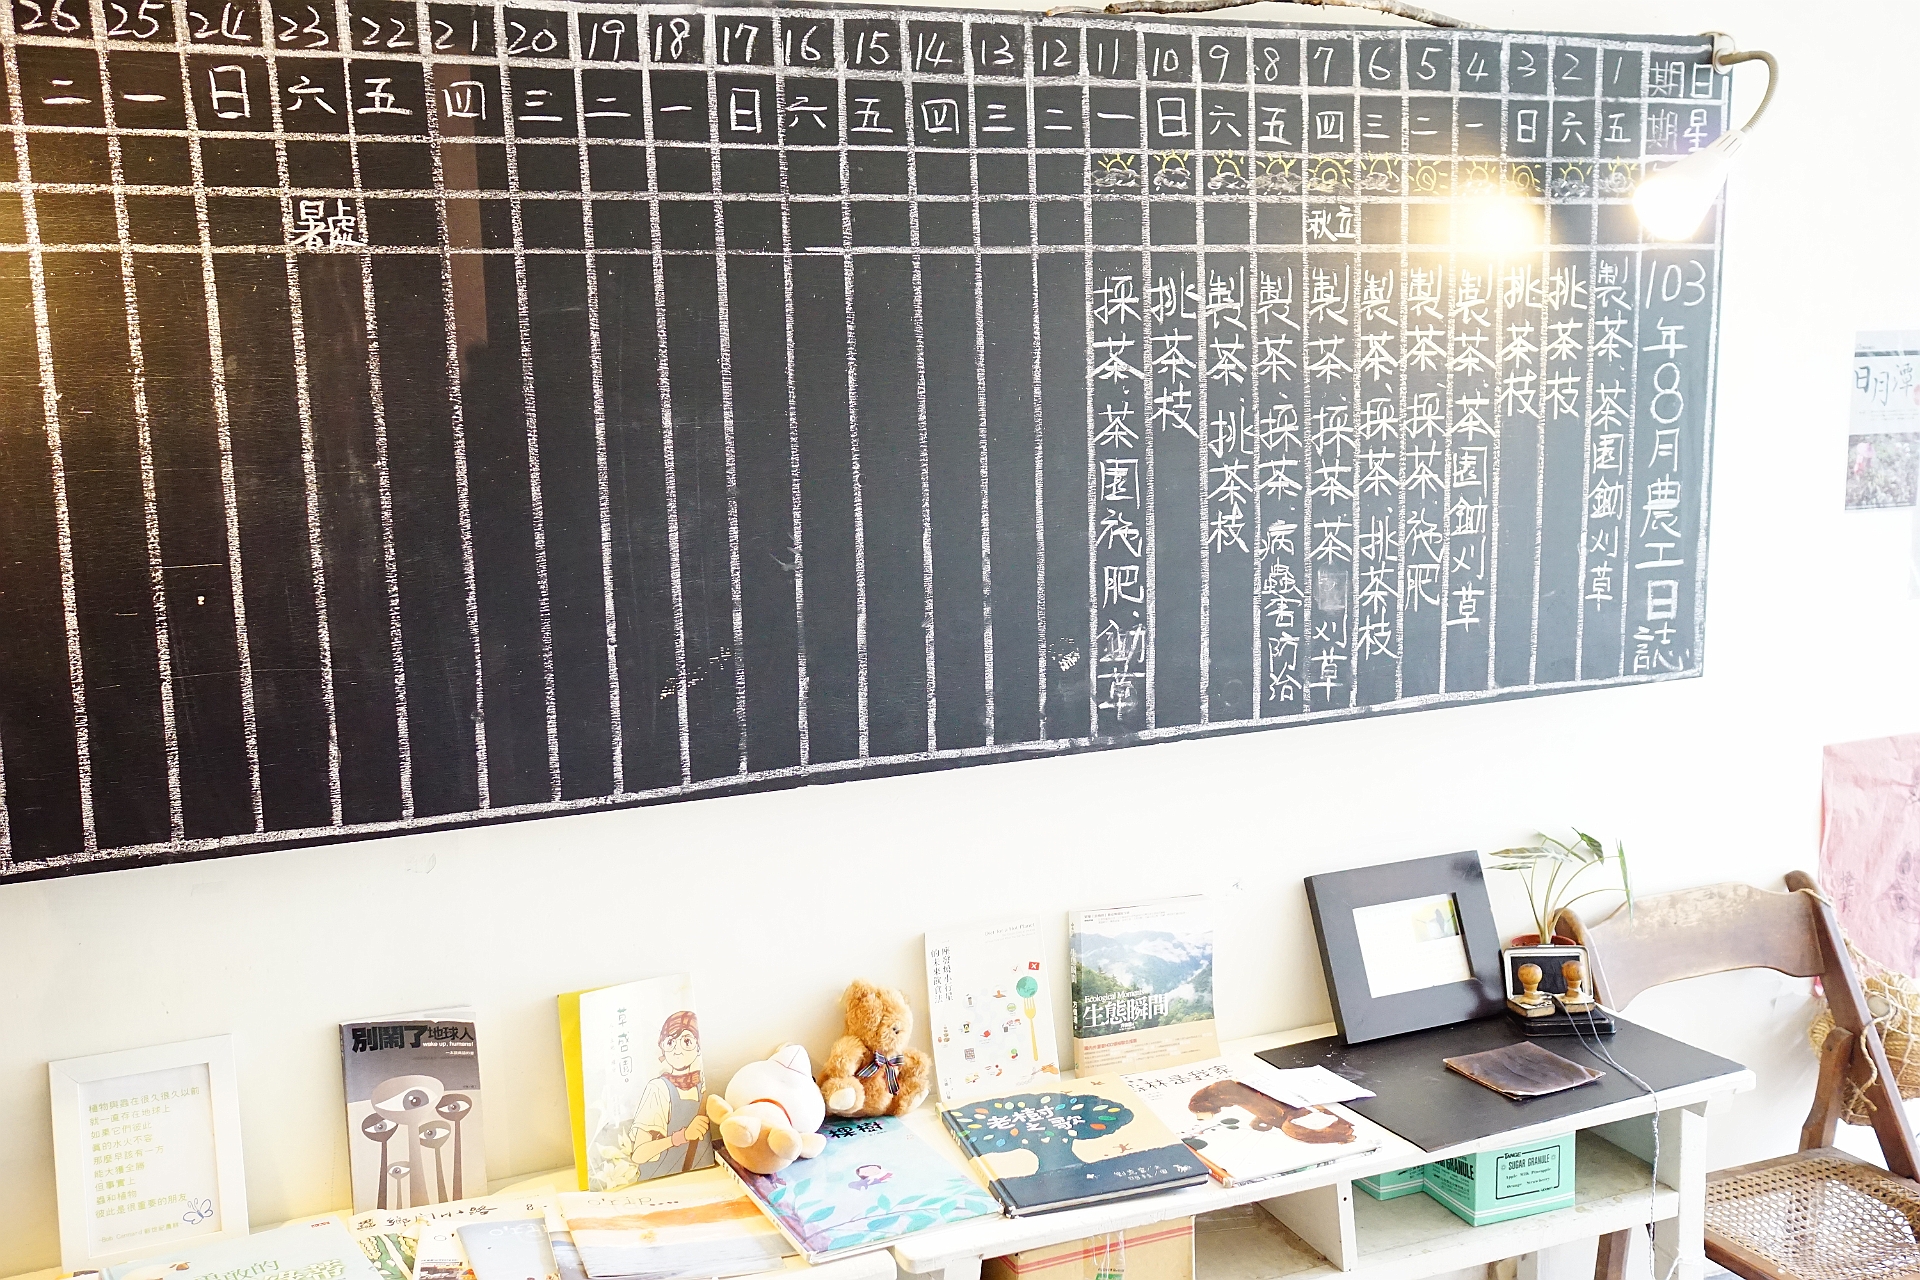 103年8月農工日誌
日期 1 2 3 4 5 6 7 8 9 10 11 12 13 14 15 16 17 18 19 20 21 22 23 24 25 26
星期 五 六 日 一 二 三 四 五 六 日 一 二 三 四 五 六 日 一 二 三 四 五 六 日 一 二
立秋
處暑
製茶.茶園鋤刈草
挑茶枝
挑茶枝
製茶.茶園鋤刈草
製茶.採茶.施肥
製茶.採茶.挑茶枝
製茶.採茶.茶 刈草
製茶.採茶.病蟲害防治
製茶.挑茶枝
挑茶枝
採茶.茶園施肥.鋤草
日月潭
植物與蟲在很久很久以前
就一直存在地球上
如果它們彼此
真的水火不容
那麼早該有一方
能大獲全勝
但事實上
蟲和植物
彼此是很重要的朋友
別鬧了地球人
wake up, humans!
座發燒小行星
的未來飲食法
Ecological Moment
生態瞬間
粿樹
老樹之歌
森林是我家
TANGE
SUGAR GRANULE